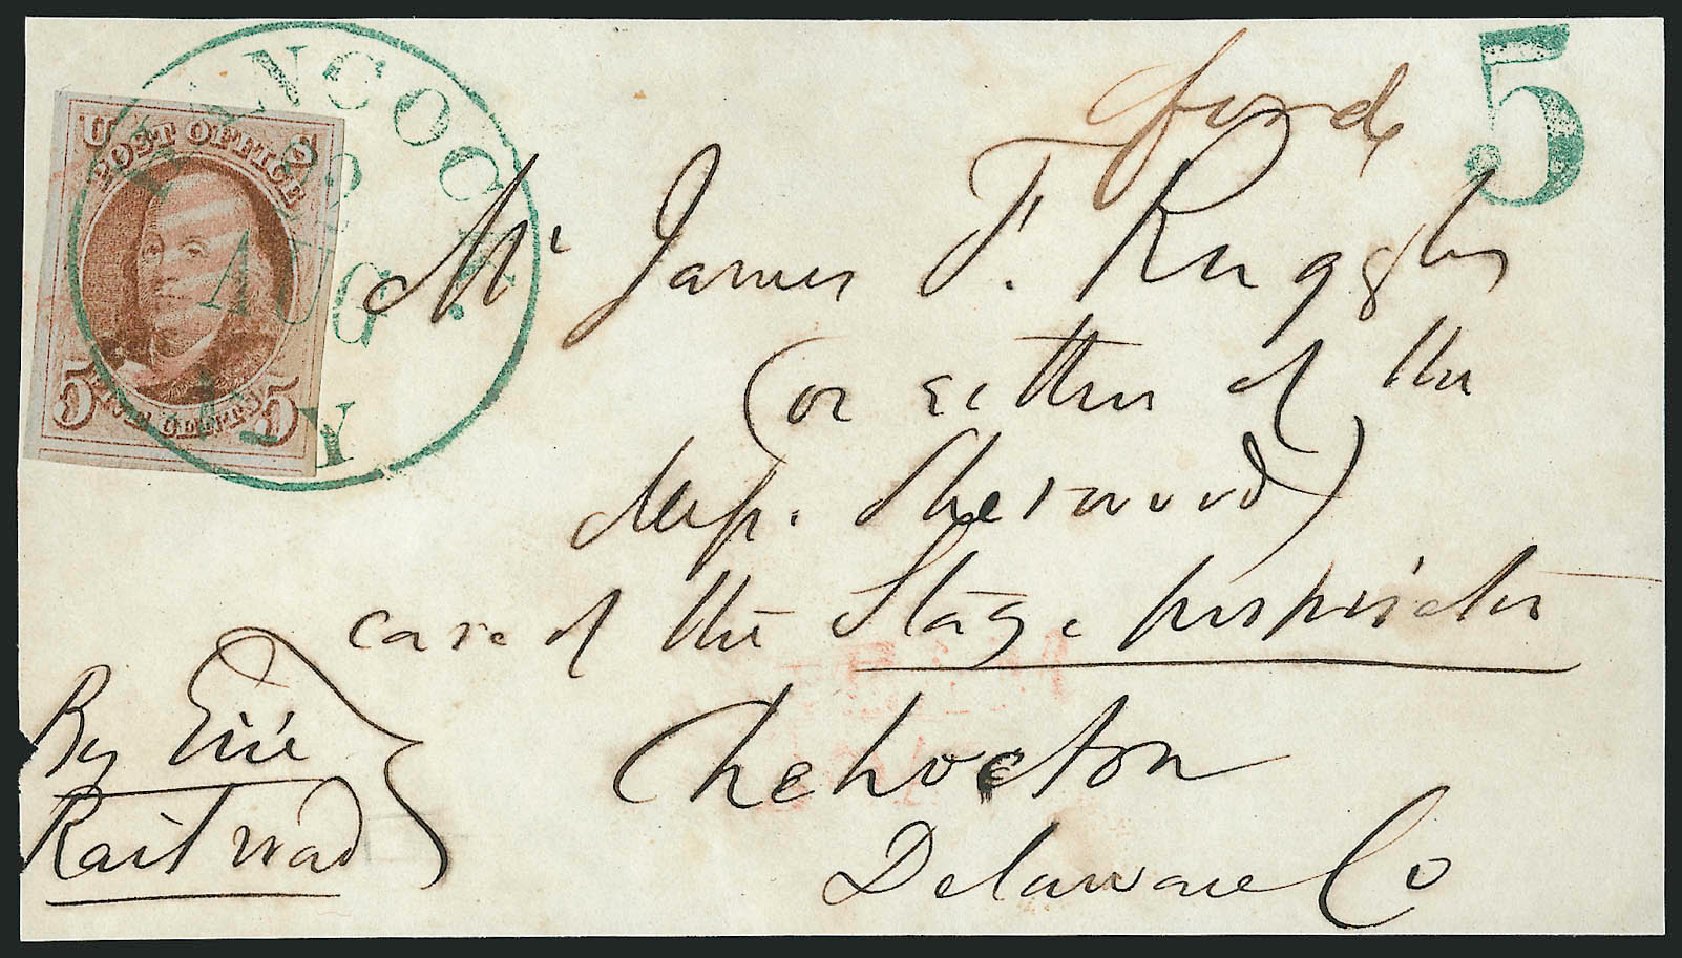 HANCOCK
23
AUG
N Y
POST OFFICE
FIVE CENTS
5 5
forde
5
Mr James F. Ruggles
(or either of the
Messrs. Sherwood)
care of the Stage proprietor
By Erie
Railroad
Chehocton
Delaware Co